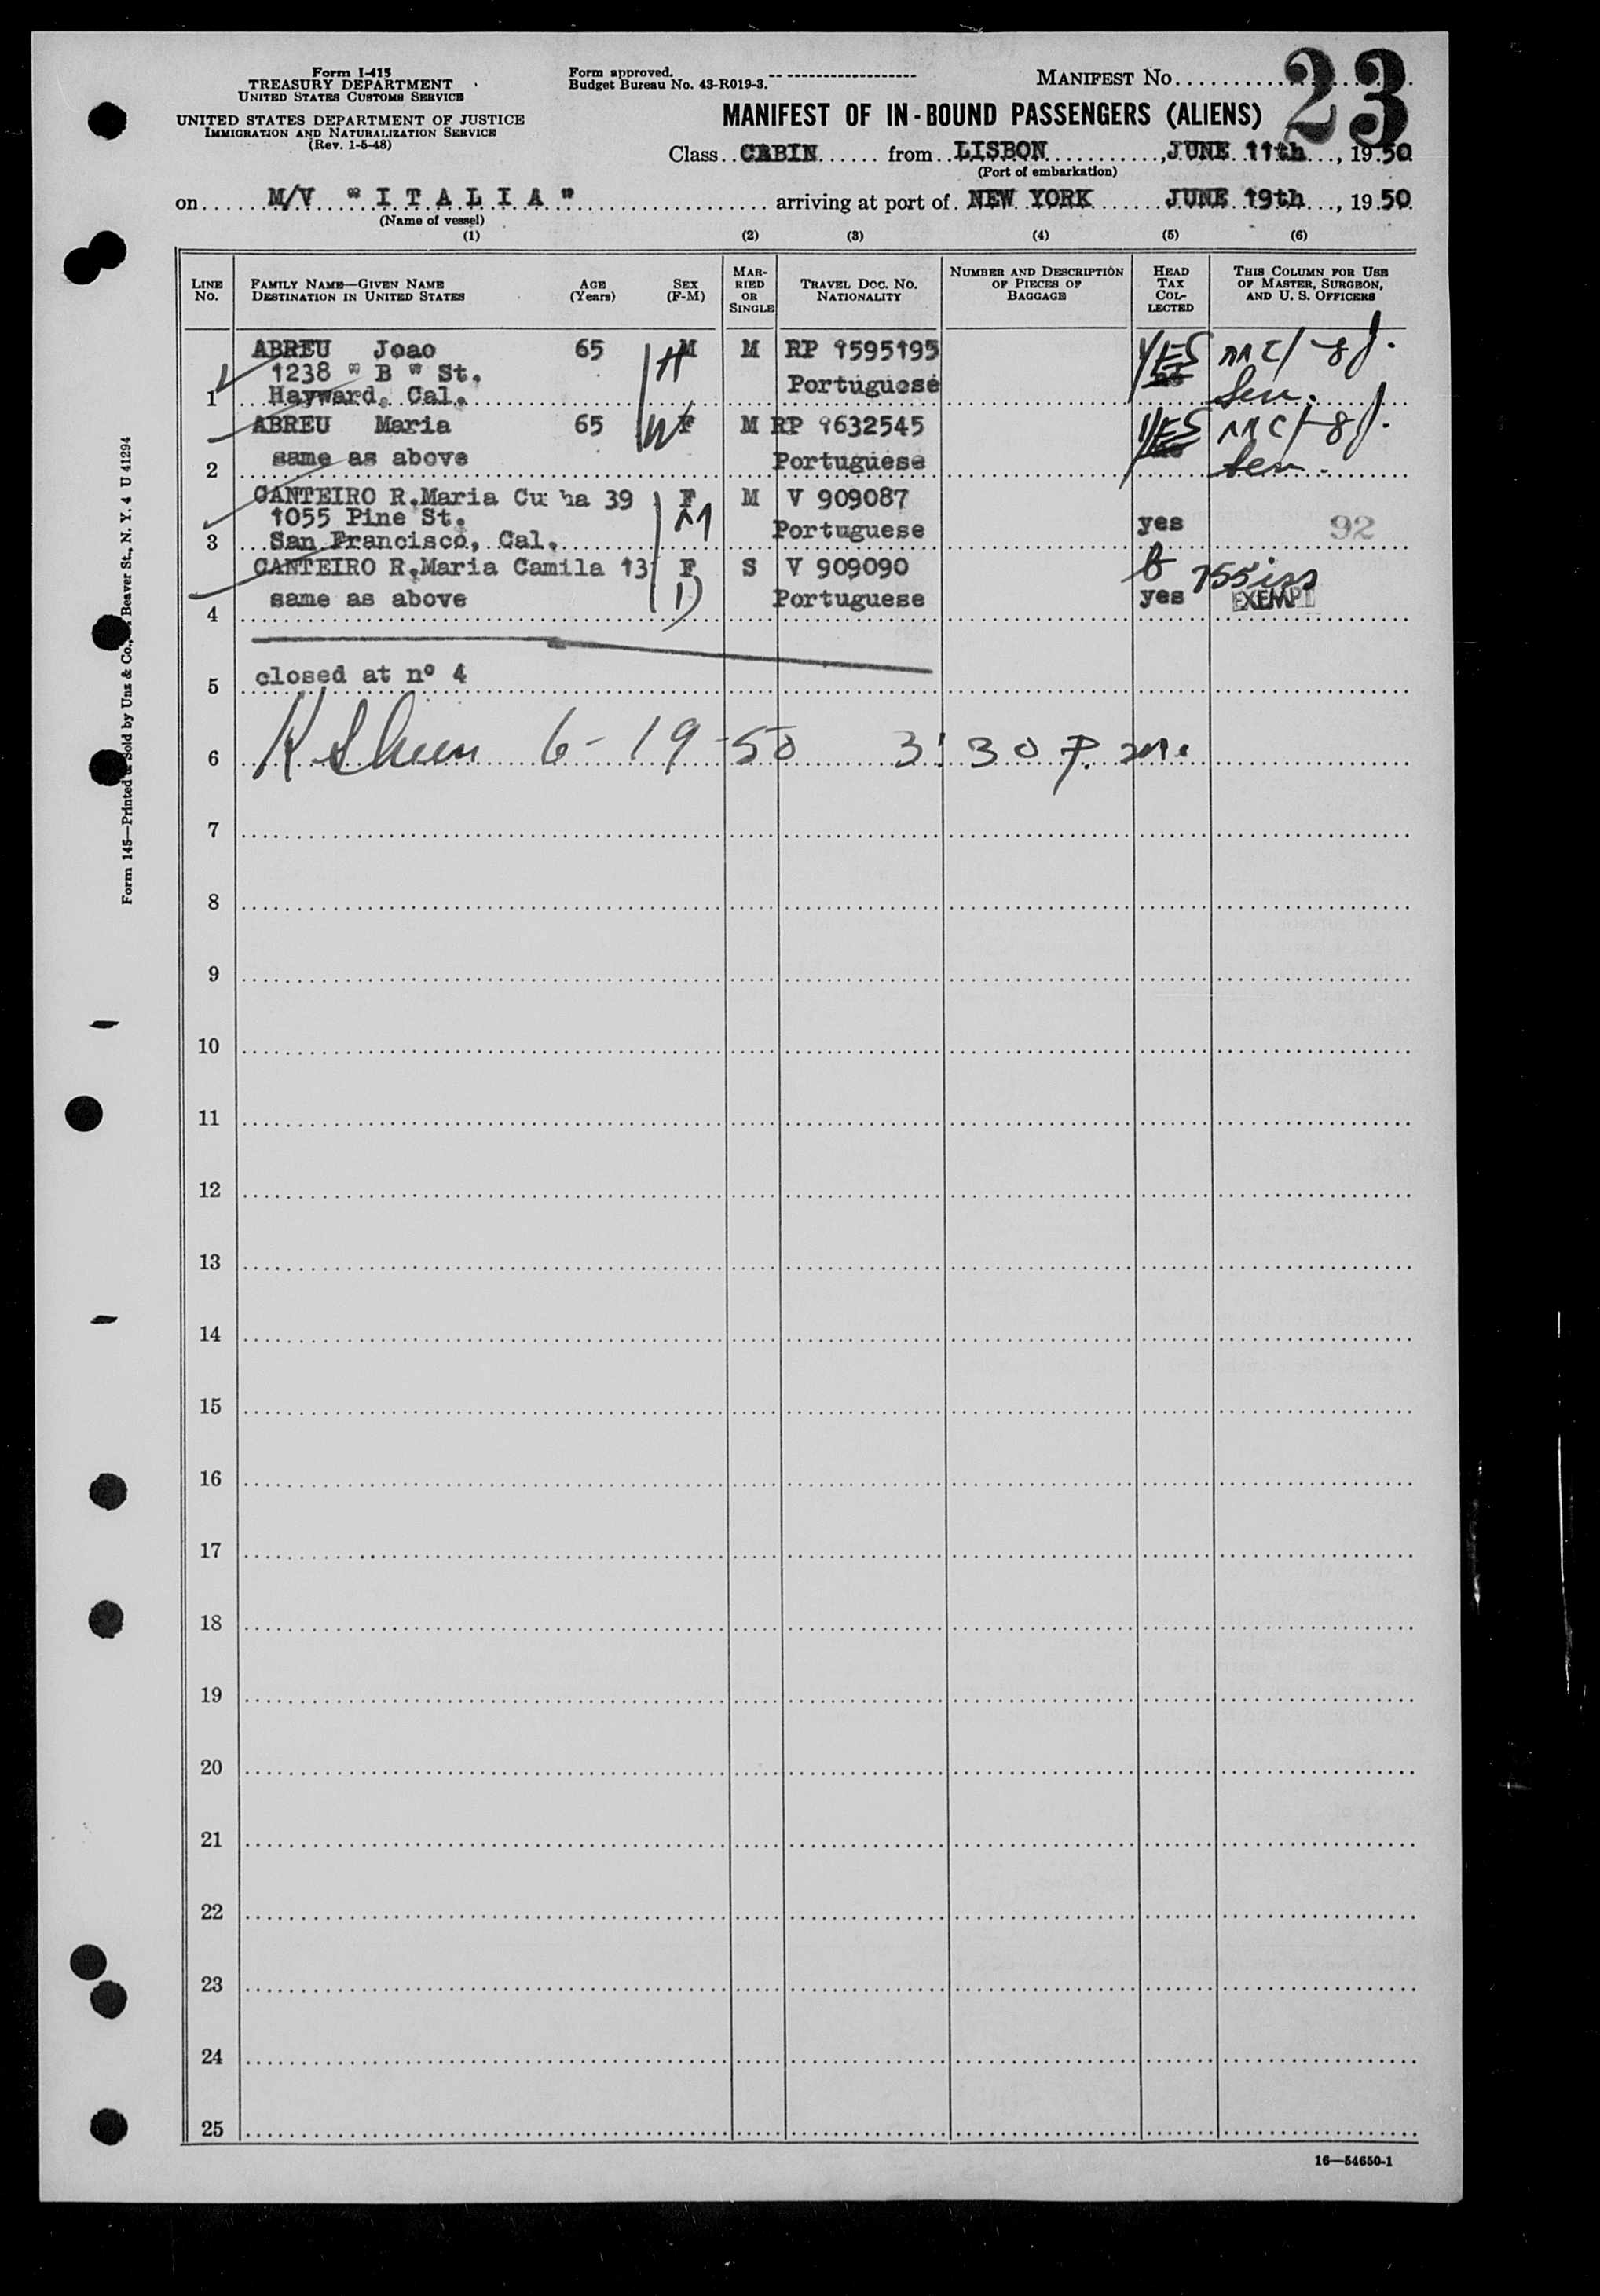 Form I-415
TREASURY DEPARTMENT
UNITED STATES CUSTOMS SERVICE
UNITED STATES DEPARTMENT OF JUSTICE
IMMIGRATION AND NATURALIZATION SERVICE
(Rev. 1-5-48)
Form approved.
Budget Bureau No. 43-R019-3.
MANIFEST No. 23
MANIFEST OF IN-BOUND PASSENGERS (ALIENS)
Class CABIN from LISBON, JUNE 11th, 1950
(Port of embarkation)
on M/V "ITALIA" arriving at port of NEW YORK JUNE 19th, 1950
(Name of vessel)
(1) (2) (3) (4) (5) (6)
LINE No.
FAMILY NAME—GIVEN NAME
DESTINATION IN UNITED STATES
AGE (Years)
SEX (F-M)
MARRIED OR SINGLE
TRAVEL DOC. NO.
NATIONALITY
NUMBER AND DESCRIPTION OF PIECES OF BAGGAGE
HEAD TAX COLLECTED
THIS COLUMN FOR USE OF MASTER, SURGEON, AND U. S. OFFICERS
ABREU Joao 65 M M RP 1595195 YES
1238 "B" St. H Portuguese
1 Hayward, Cal.
ABREU Maria 65 F M RP 1632545 YES
W
2 same as above Portuguese
CANTEIRO R.Maria Cu ha 39 F M V 909087
1055 Pine St. M Portuguese yes 92
3 San Francisco, Cal.
CANTEIRO R.Maria Camila 13 F S V 909090
4 same as above D Portuguese yes EXEMPT
5 closed at nº 4
6 6-19-50 3:30 P.m.
7
8
9
10
11
12
13
14
15
16
17
18
19
20
21
22
23
24
25
16—54650-1
Form 145—Printed & Sold by Unz & Co., Beaver St., N. Y. 4 U 41294